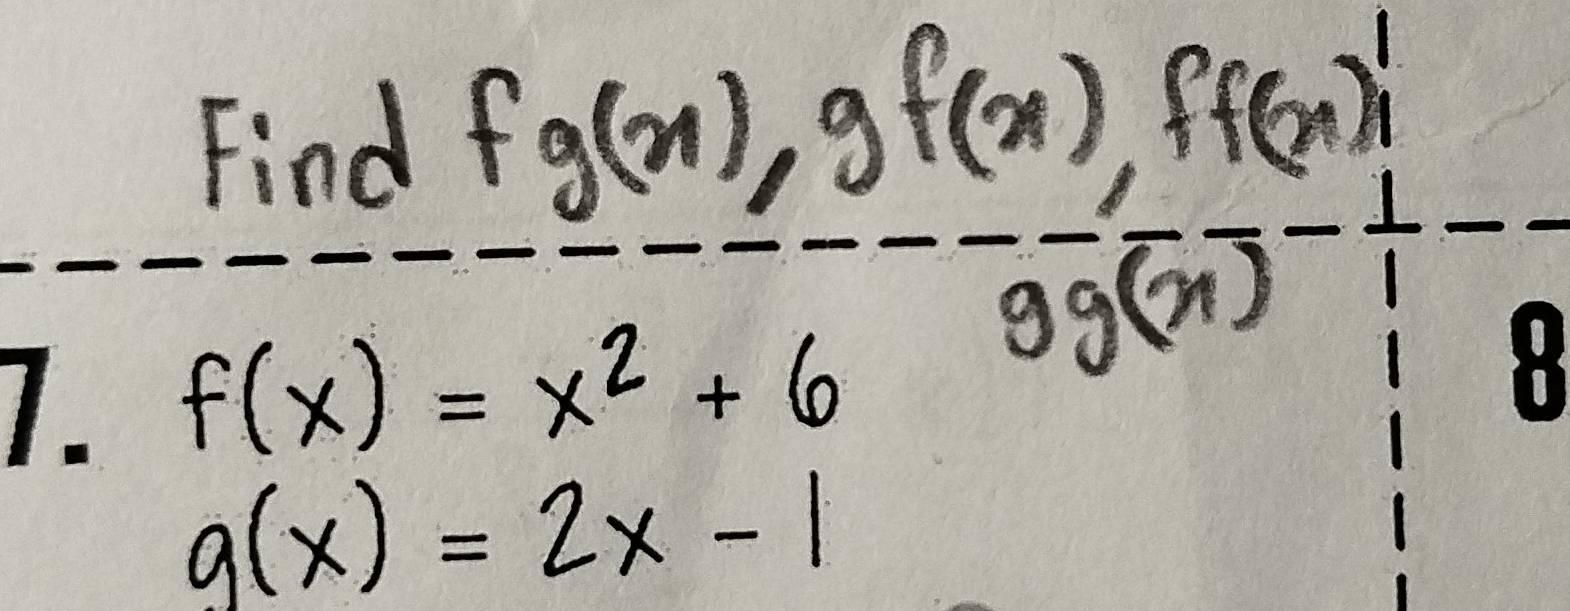 Find fg(x), gf(x), ff(x)
gg(x)
7. f(x) = x² + 6
8
g(x) = 2x - 1